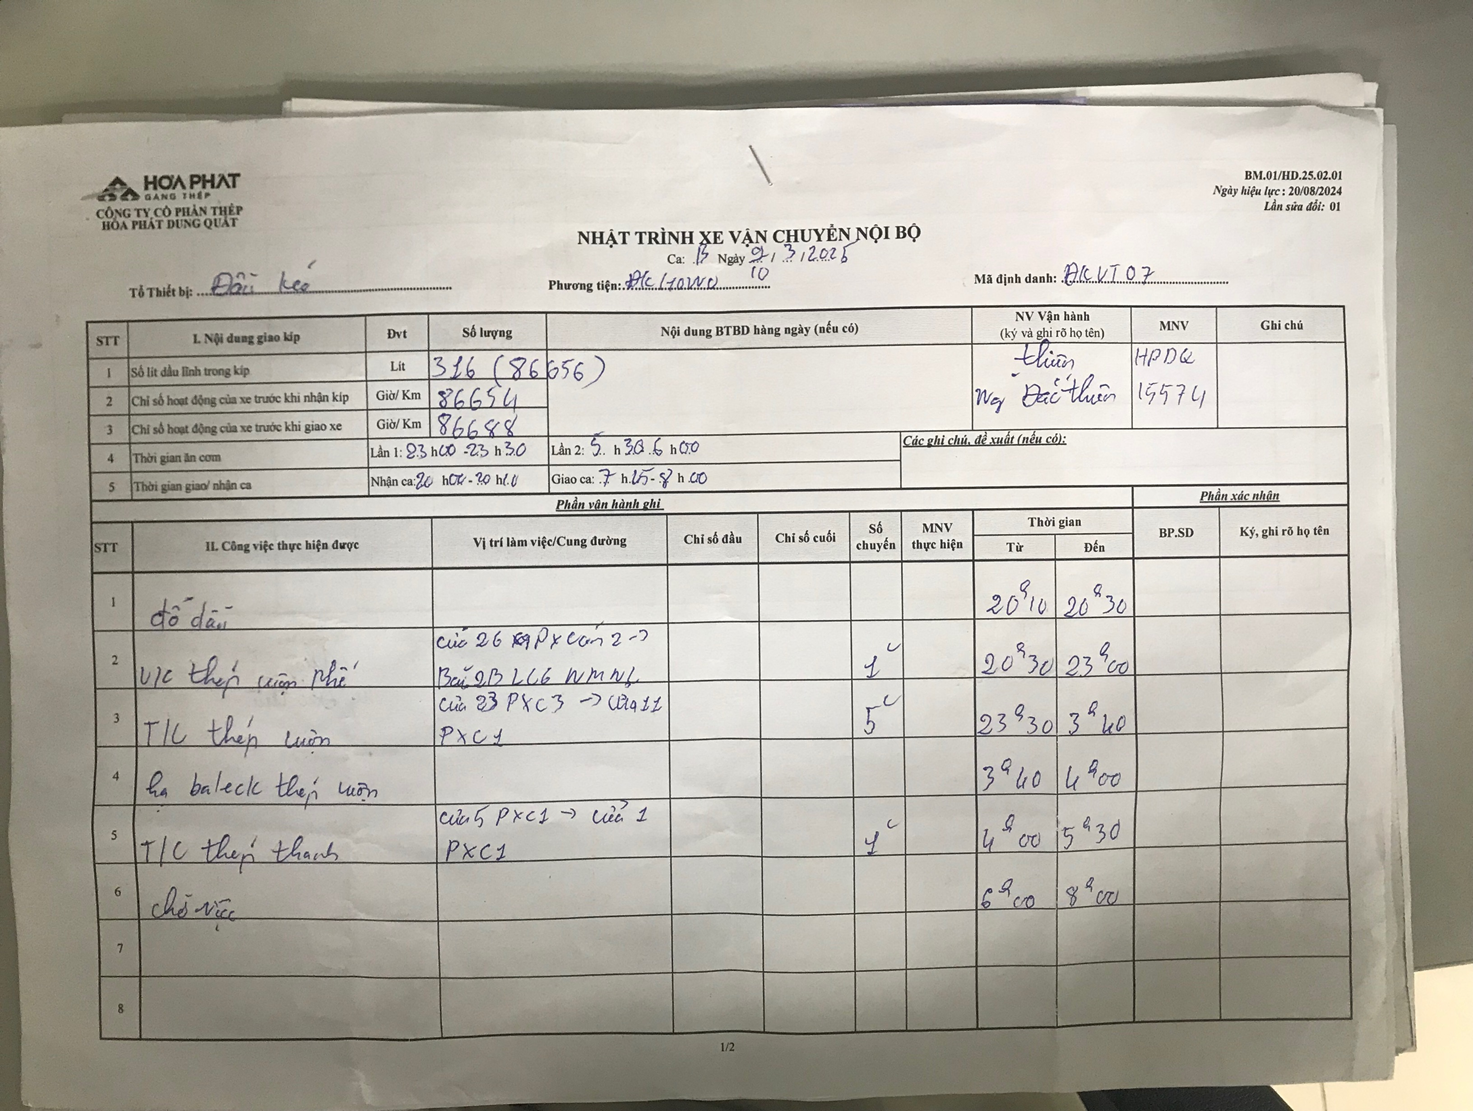 HÒA PHÁT
GANG THÉP
CÔNG TY CỔ PHẦN THÉP
HÒA PHÁT DUNG QUẤT
BM.01/HD.25.02.01
Ngày hiệu lực : 20/08/2024
Lần sửa đổi: 01
NHẬT TRÌNH XE VẬN CHUYỂN NỘI BỘ
Ca: B Ngày 9/3/2025
10
Tổ Thiết bị: Đầu kéo
Phương tiện: ĐK HOWO
Mã định danh: ĐKVT07
STT I. Nội dung giao kíp Đvt Số lượng Nội dung BTBD hàng ngày (nếu có) NV Vận hành (ký và ghi rõ họ tên) MNV Ghi chú
1 Số lít dầu lĩnh trong kíp Lít 316 (86656) thiên HPDQ
2 Chỉ số hoạt động của xe trước khi nhận kíp Giờ/ Km 86654 Ng Đắc thiên 15574
3 Chỉ số hoạt động của xe trước khi giao xe Giờ/ Km 86688
4 Thời gian ăn cơm Lần 1: 23 h00 - 23 h 30 Lần 2: 5 h 30 6 h00 Các ghi chú, đề xuất (nếu có):
5 Thời gian giao/ nhận ca Nhận ca: 20 h00 - 20 h10 Giao ca: 7 h 45 - 8 h 00
Phần vận hành ghi Phần xác nhận
STT II. Công việc thực hiện được Vị trí làm việc/Cung đường Chỉ số đầu Chỉ số cuối Số chuyến MNV thực hiện Thời gian BP.SD Ký, ghi rõ họ tên
Từ Đến
1 đổ dầu 20g10 20g30
2 V/C thép cuộn phế cửa 26 PX cán 2 →
Bãi 2B LC6 NMNL 1c 20g30 23g00
3 T/C thép cuộn cửa 23 PXC3 → cửa 11
PXC1 5c 23g30 3g40
4 hạ baleck thép cuộn 3g40 4g00
5 T/C thép thanh cửa 5 PXC1 → cửa 1
PXC1 1c 4g00 5g30
6 chờ việc 6g00 8g00
7
8
1/2